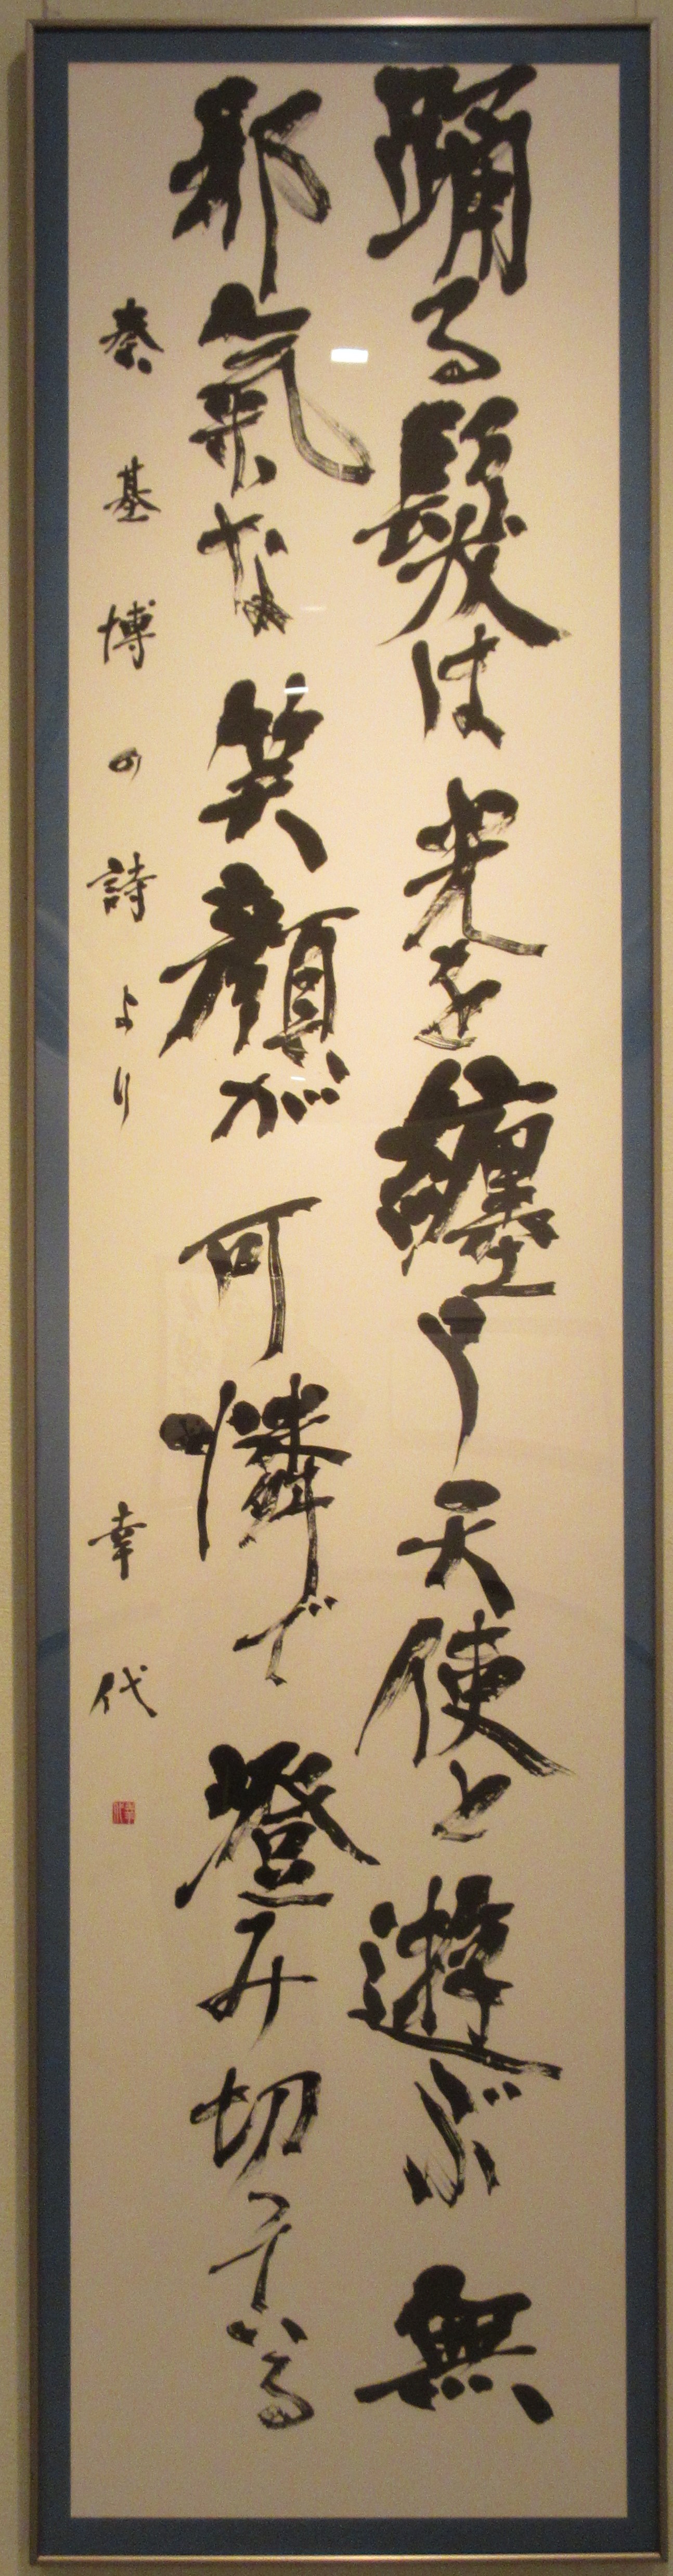 踊る髪は光を纏う天使と遊ぶ無
邪氣な笑顔が可憐で澄み切っている
秦基博の詩より 幸代